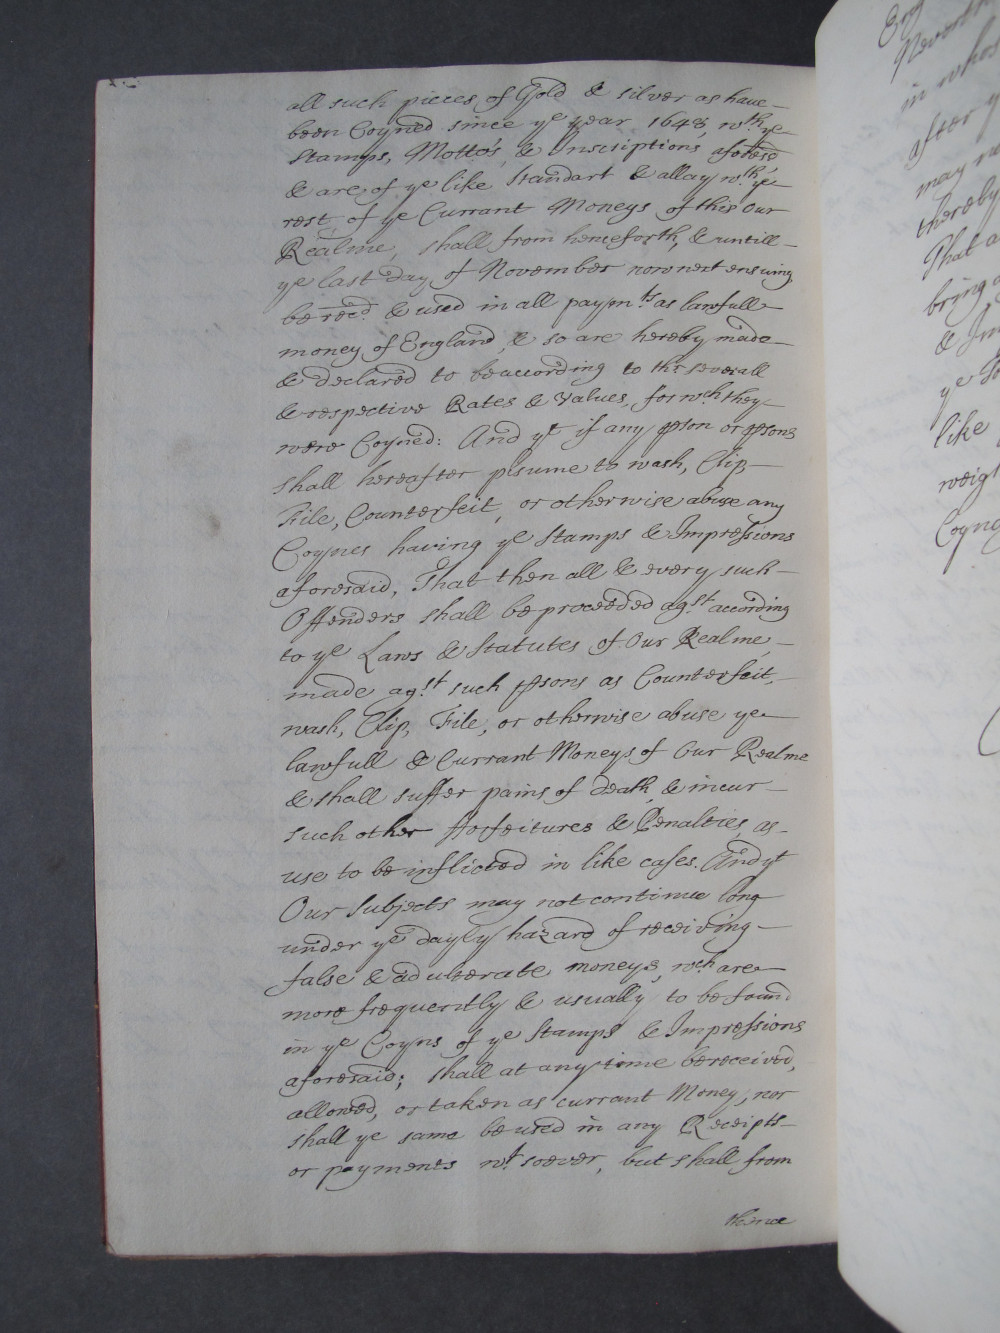 all such pieces of Gold & silver as have
been Coyned since ye year 1648, wth ye
Stamps, Motto's, & Inscriptions aforesd
& are of ye like Standart & allay wth ye
rest of ye Currant Moneys of this Our
Realme, shall from henceforth, & untill
ye last day of November now next ensuing
be recd & used in all paymts as lawfull
money of England, & so are hereby made
& declared to be according to the severall
& respective Rates & Values, for wch they
were Coyned: And yt if any pson or psons
shall hereafter psume to wash, Clip,
File, Counterfeit, or otherwise abuse any
Coynes having ye Stamps & Impressions
aforesaid, That then all & every such
Offenders shall be proceeded agst according
to ye Laws & Statutes of Our Realme,
made agst such psons as Counterfeit,
wash, Clip, File, or otherwise abuse ye
lawfull & Currant Moneys of Our Realme
& shall suffer pains of death, & incur
such other fforfeitures & Penalties, as
use to be inflicted in like cases. And yt
Our Subjects may not continue long
under ye dayly hazard of receiving
false & adulterate moneys, wch are
more frequently & usually to be found
in ye Coyns of ye Stamps & Impressions
aforesaid; shall at any time be received,
allowed, or taken as currant Money, nor
shall ye same be used in any Receipts
or payments wt soever, but shall from
thence
in whos
after y
may
thereby
That a
bring
& Im
ye
like
weigh
Coyn